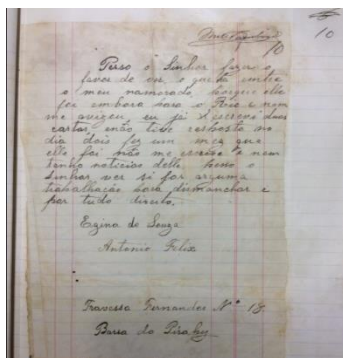 10
10
Peso o Sinhor fazer o
favor de ver, o que ha entre
o meu namorado, porque elle
foi embora para o Rio e nem
me avizou eu ja escrevi duas
cartas não tive resposta no
dia dois fez um mez que
elle foi não me escreve e nem
tenho noticias delle. Peso
Sinhor ver si for arguma
trabalhação para dismanchar e
por tudo direito.
Egina de Souza
Antonio Felix
Travessa Fernandes Nº 18.
Barra do Pirahy